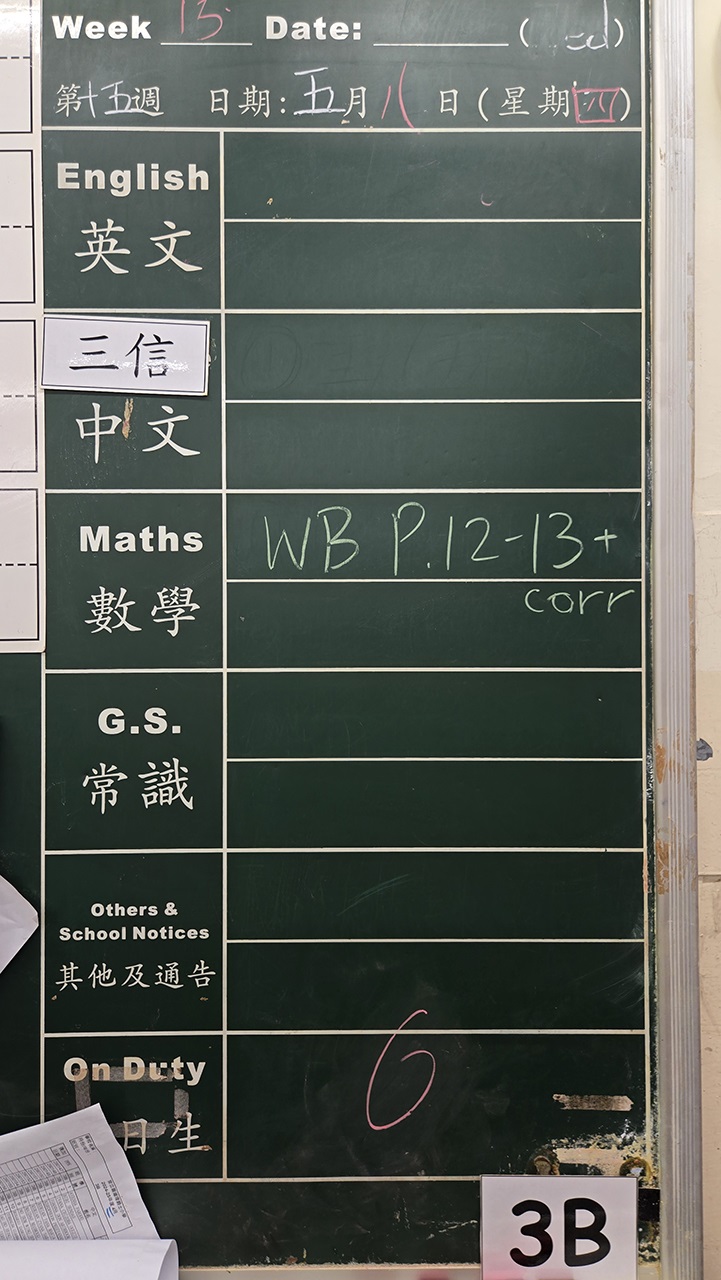 Week 15 Date: ( )
第十五週 日期:五月八日(星期四)
English
英文
三信
中文
Maths WB P.12-13+
corr
數學
G.S.
常識
Others &
School Notices
其他及通告
On Duty 6
日生
3B